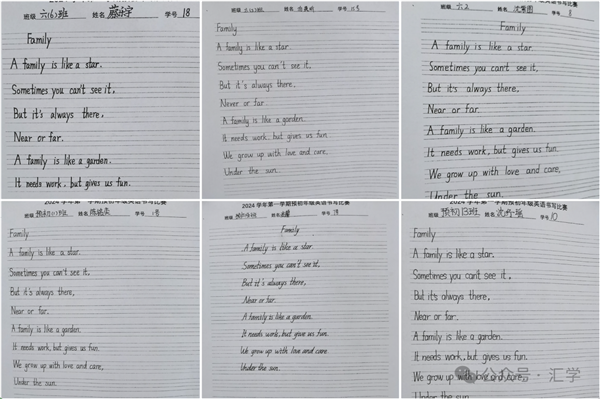 班级 六(6)班 姓名 学号 18
Family
A family is like a star.
Sometimes you can't see it,
But it's always there,
Near or far.
A family is like a garden.
It needs work, but gives us fun.
班级 姓名 学号
Family
A family is like a star.
Sometimes you can't see it,
But it's always there,
Never or far.
A family is like a garden.
It needs work, but gives us fun
We grow up with love and care,
Under the sun.
班级 六2 姓名 学号 8
Family
A family is like a star.
Sometimes you can't see it,
But it's always there,
Near or far.
A family is like a garden.
It needs work, but gives us fun.
We grow up with love and care,
Under the sun.
2024 学年第一学期预初年级英语书写比赛
班级 姓名 学号
Family
A family is like a star.
Sometimes you can't see it,
But it's always there,
Near or far.
A family is like a garden.
It needs work, but gives us fun.
We grow up with love and care,
Under the sun.
2024 学年第一学期预初年级英语书写比赛
班级 姓名 学号
Family
A family is like a star.
Sometimes you can't see it,
But it's always there,
Near or far.
A family is like a garden.
It needs work, but give us fun.
We grow up with love and care.
Under the sun.
2024 学年第一学期预初年级英语书写比赛
班级 预初13班 姓名 学号 10
Family
A family is like a star.
Sometimes you can't see it,
But it's always there,
Near or far.
A family is like a garden.
It needs work, but gives us fun.
We grow up with love and care,
Under the sun.
公众号·汇学